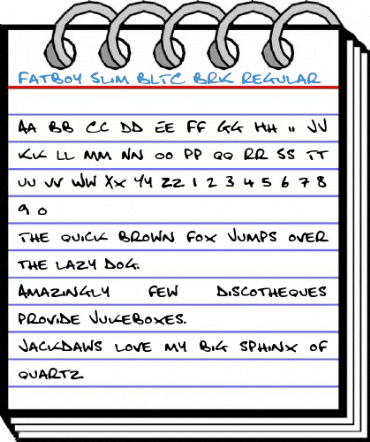 FATBOY SLIM BLTC BRK REGULAR
AA BB CC DD EE FF GG HH II JJ
KK LL MM NN OO PP QQ RR SS TT
UU VV WW XX YY ZZ 1 2 3 4 5 6 7 8
9 0
THE QUICK BROWN FOX JUMPS OVER
THE LAZY DOG.
AMAZINGLY FEW DISCOTHEQUES
PROVIDE JUKEBOXES.
JACKDAWS LOVE MY BIG SPHINX OF
QUARTZ